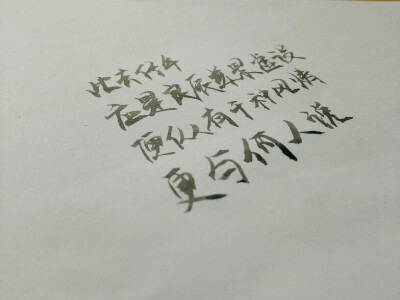 此去经年
应是良辰美景虚设
便纵有千种风情
更与何人说